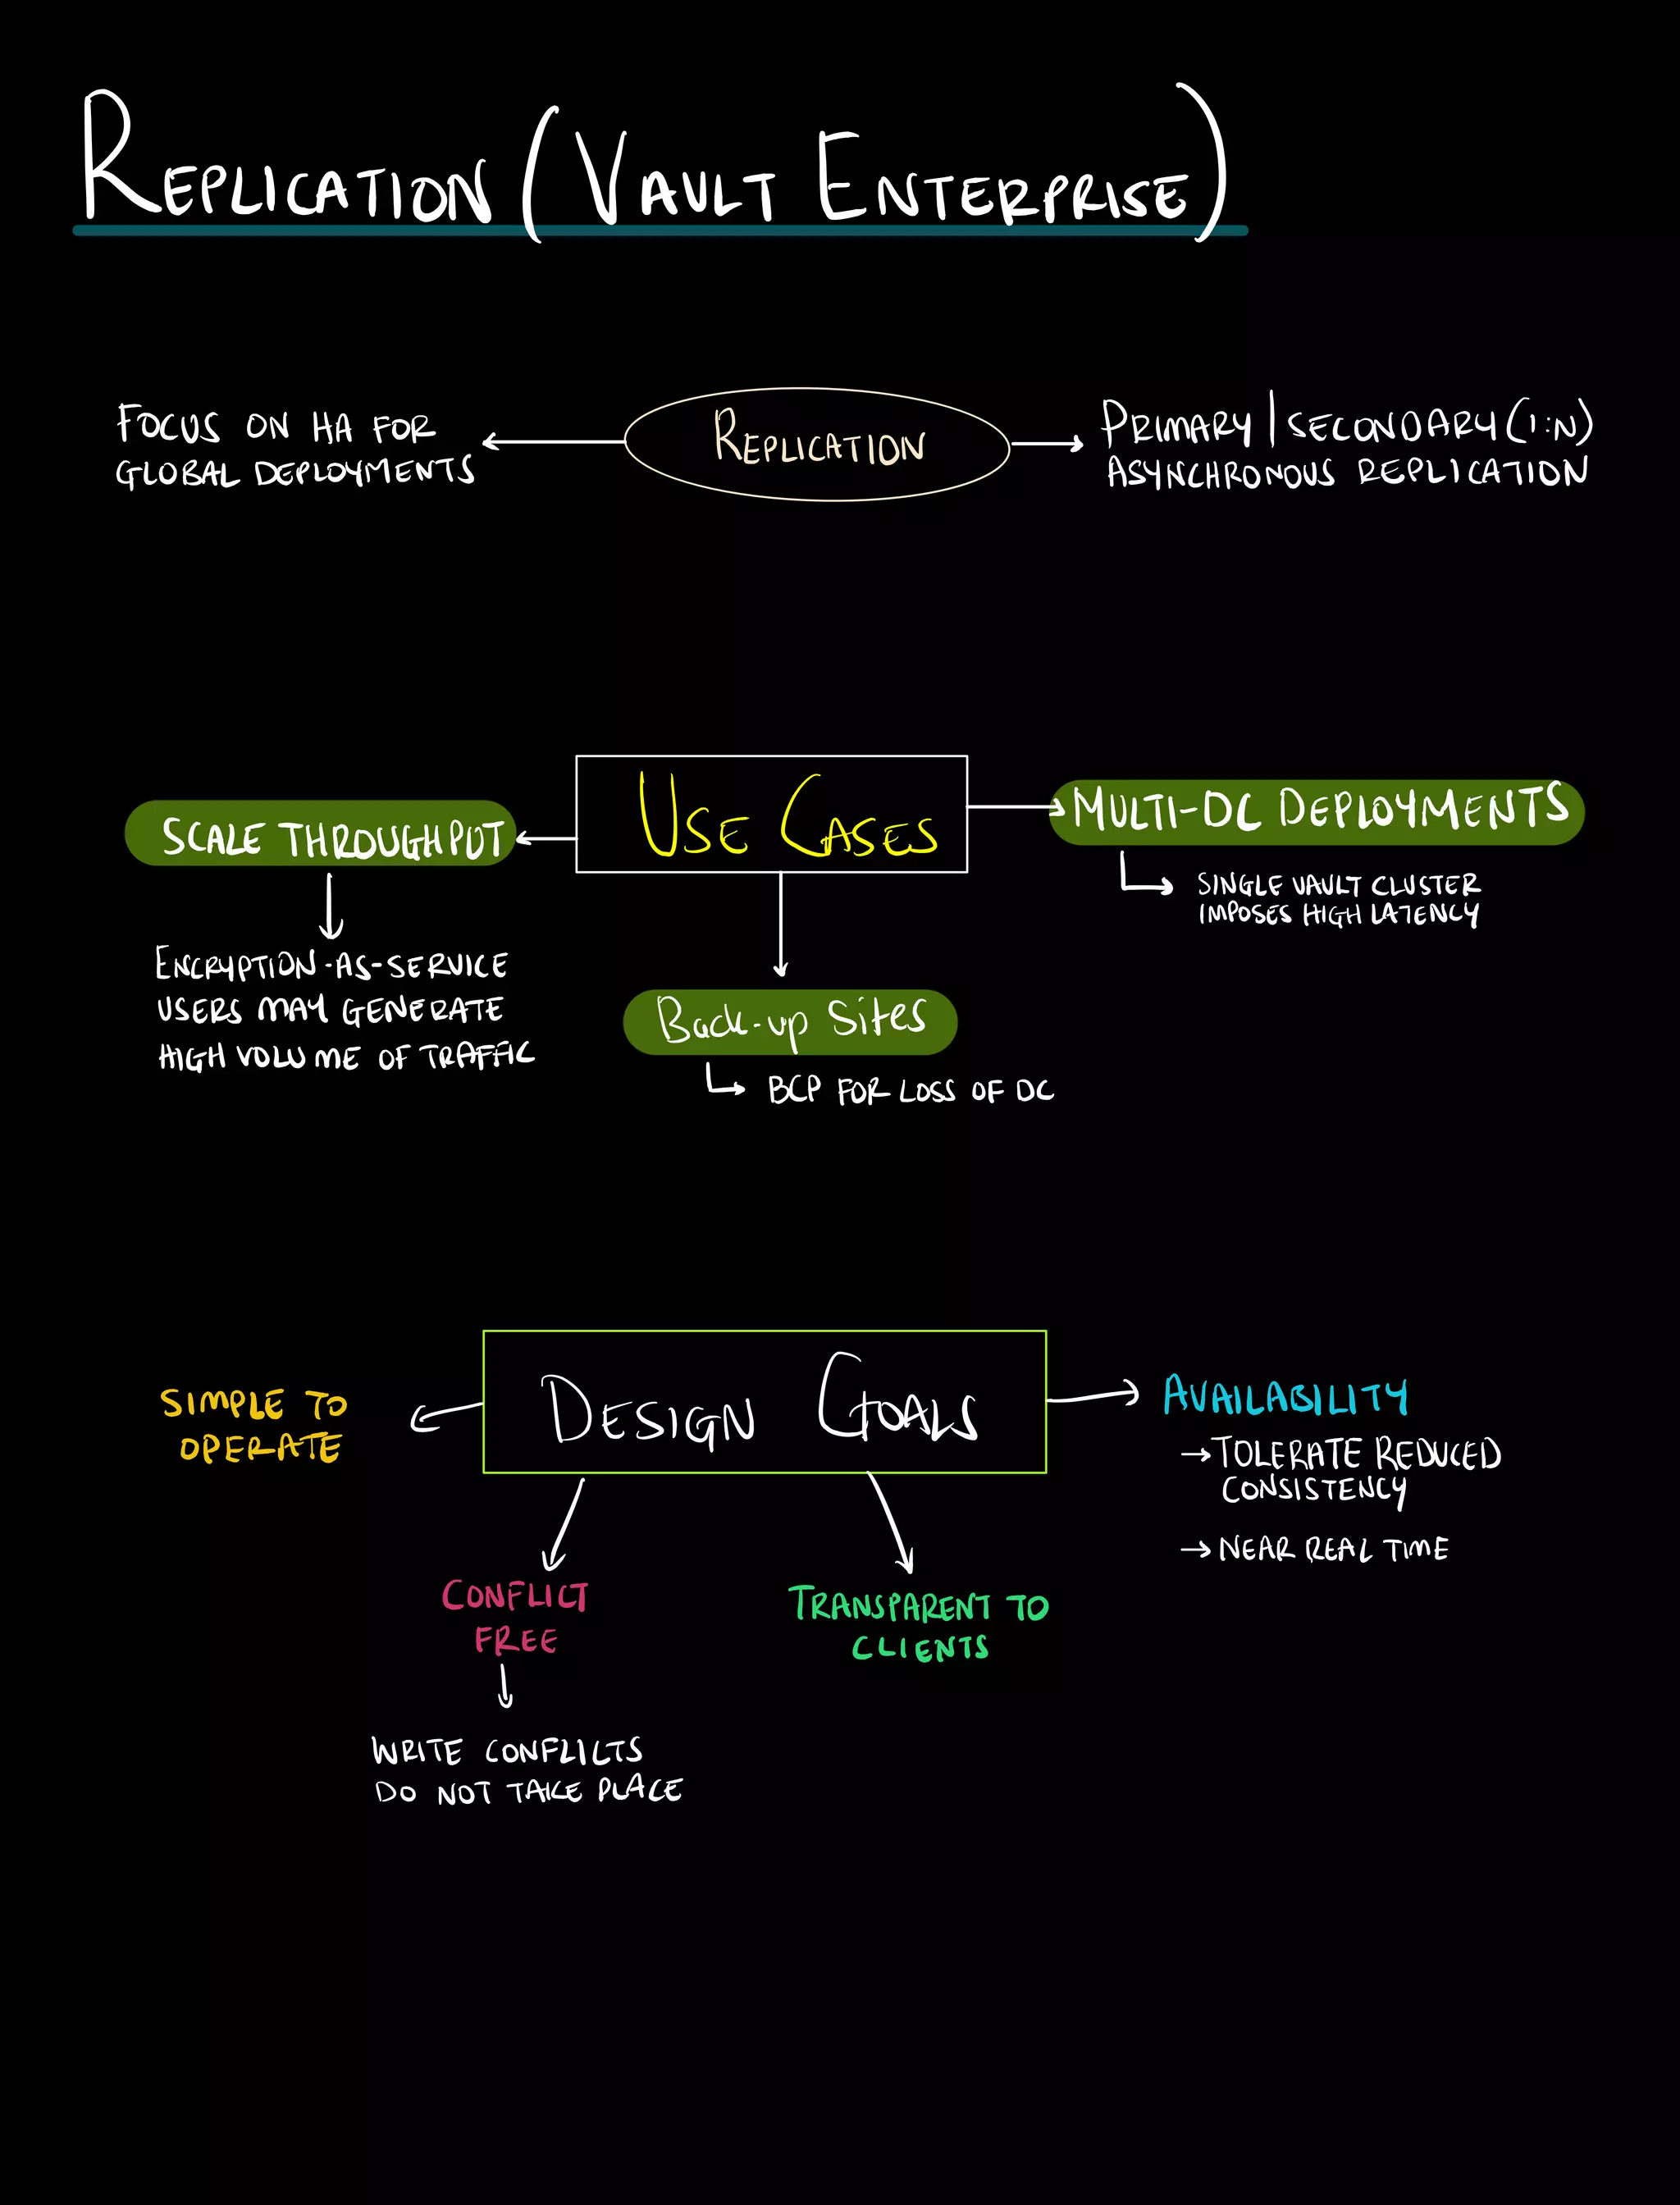 REPLICATION (VAULT ENTERPRISE)
FOCUS ON HA FOR
GLOBAL DEPLOYMENTS
REPLICATION
PRIMARY | SECONDARY (1:N)
ASYNCHRONOUS REPLICATION
USE CASES
SCALE THROUGHPUT
ENCRYPTION-AS-SERVICE
USERS MAY GENERATE
HIGH VOLUME OF TRAFFIC
Back-up Sites
BCP FOR LOSS OF DC
MULTI-DC DEPLOYMENTS
SINGLE VAULT CLUSTER
IMPOSES HIGH LATENCY
DESIGN GOALS
SIMPLE TO
OPERATE
CONFLICT
FREE
WRITE CONFLICTS
DO NOT TAKE PLACE
TRANSPARENT TO
CLIENTS
AVAILABILITY
→ TOLERATE REDUCED
CONSISTENCY
→ NEAR REAL TIME